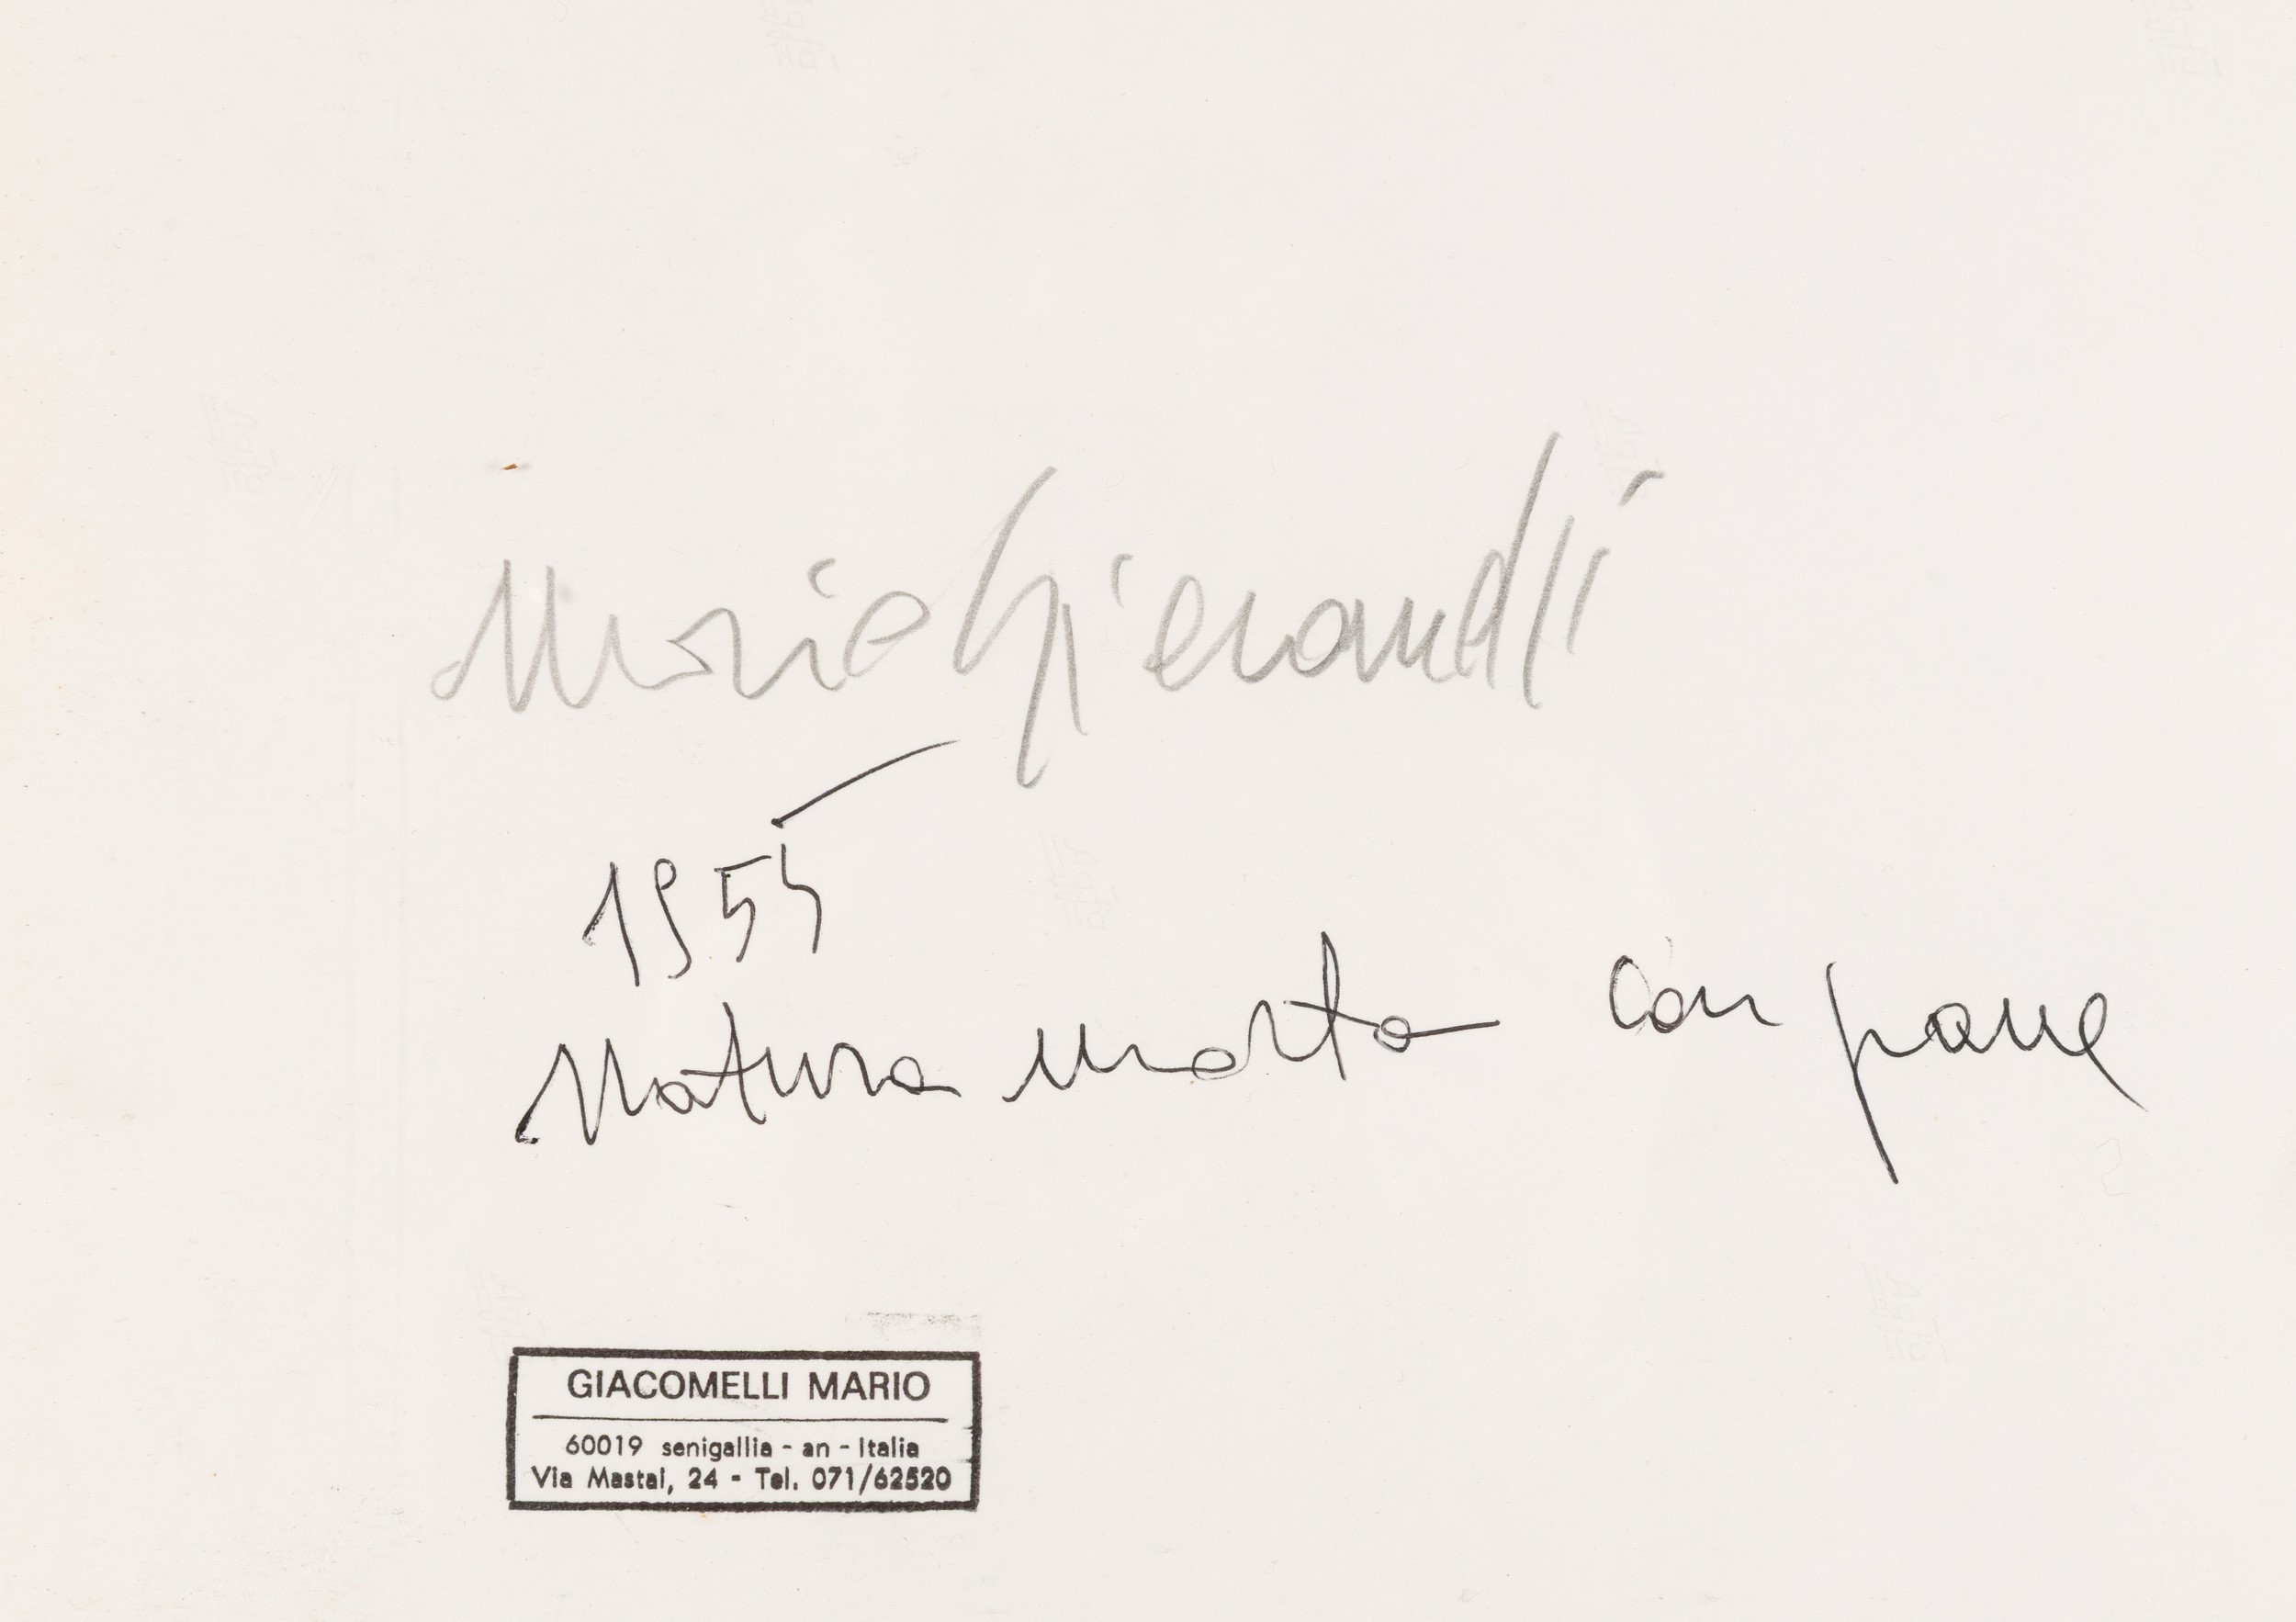 Mario Giacomelli
1955
Natura morta con pane
GIACOMELLI MARIO
60019 senigallia - an - Italia
Via Mastai, 24 - Tel. 071/62520